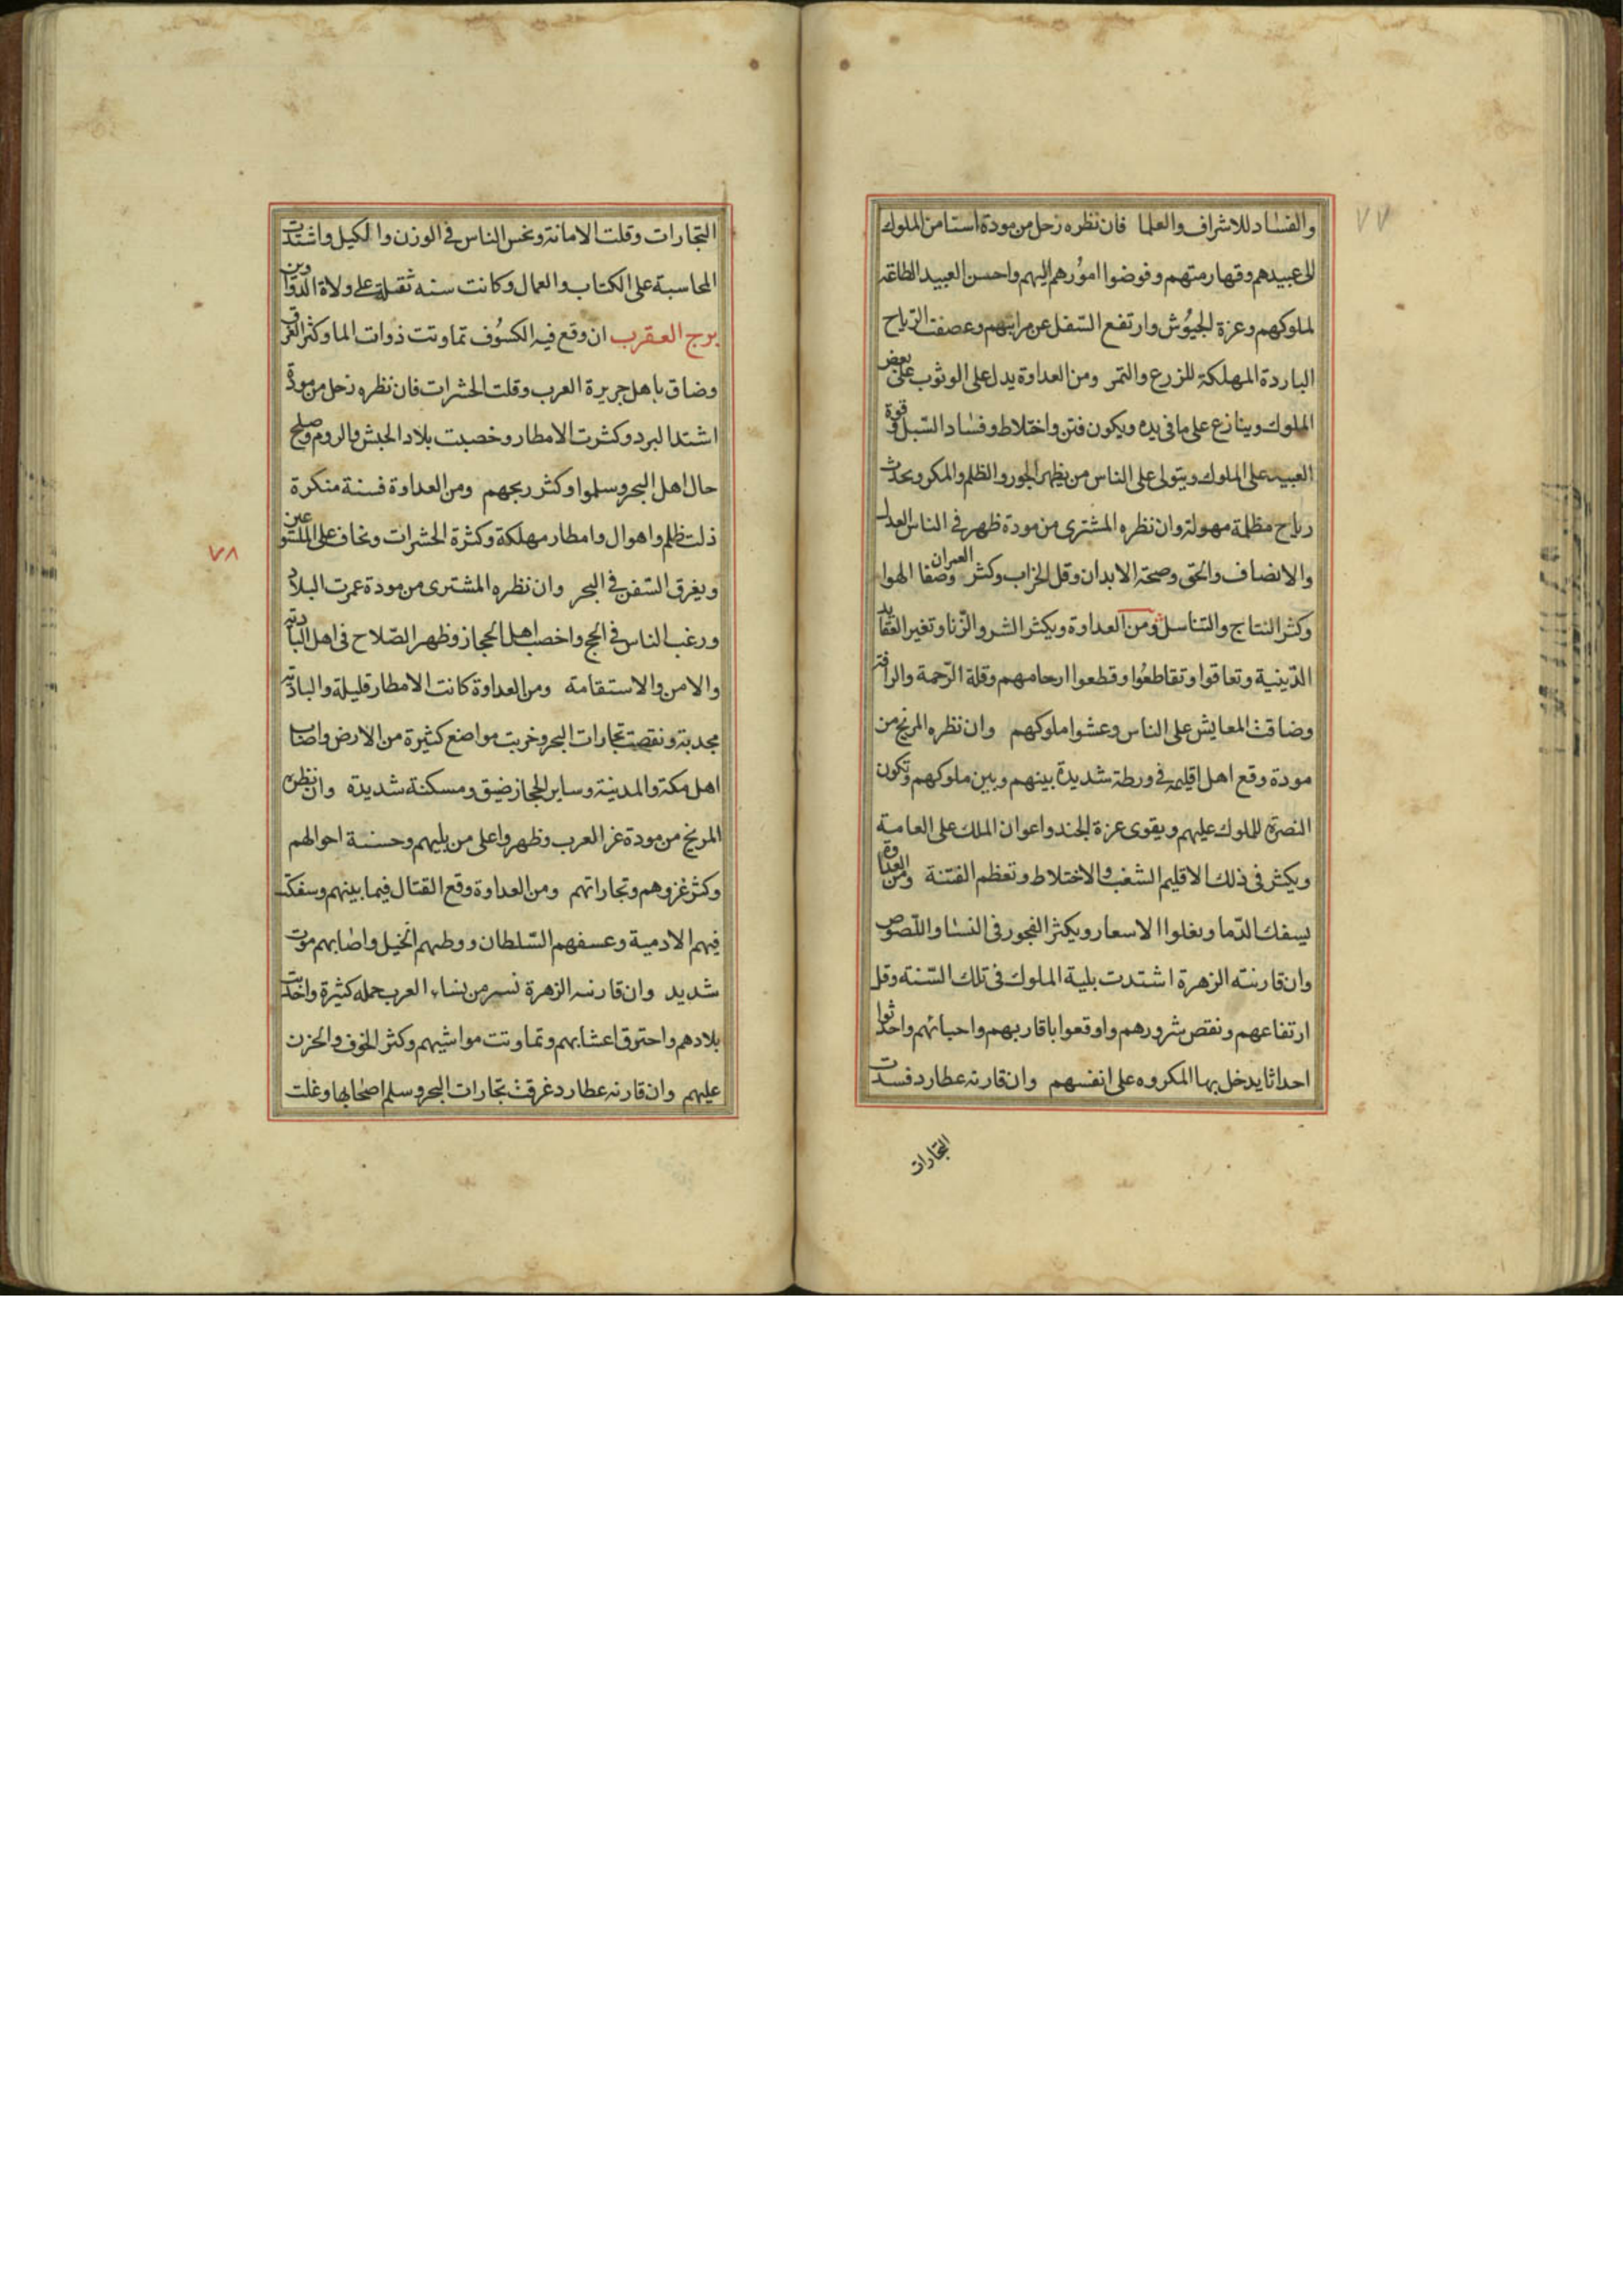 ٧٧
والفساد للاشراف والعلما فان نظره زحل من مودة استامن الملوك
الى عبيدهم وقهارمتهم وفوضوا امورهم اليهم واحسن العبيد الطاعة
لملوكهم وعزة الجيوش وارتفع السفل عن مراتبهم وعصفت الرياح
الباردة المهلكة للزرع والتمر ومن العداوة يدل على الوثوب على بعض
الملوك وينازع على ما فى يده ويكون فتن واختلاط وفساد السبل وقوة
العبيد على الملوك ويتولى على الناس من يظهر الجور والظلم والمكر ويحدث
رياح مظلمة مهولة وان نظره المشترى من مودة ظهر فى الناس العدل
والانصاف والحق وصحة الابدان وقل الخراب وكثر العمران وصفا الهوا
وكثر النتاج والتناسل ومن العداوة ويكثر الشر والزنا وتغير العقايد
الدينية وتعاقوا وتقاطعوا وقطعوا ارحامهم وقلة الرحمة والرافة
وضاقت المعايش على الناس وعشوا ملوكهم وان نظره المريخ من
مودة وقع اهل اقليمه فى ورطة شديدة بينهم وبين ملوكهم وتكون
النصرة للملوك عليهم ويقوى عزة الجند واعوان الملك على العامة
ويكثر فى ذلك الاقليم الشغب والاختلاط وتعظم الفتنة ومن العداوة
يسفك الدما ويغلوا الاسعار ويكثر الفجور فى النسا واللصوص
وان قارنته الزهرة اشتدت بلية الملوك فى تلك السنة وقل
ارتفاعهم ونقص شرورهم واوقعوا باقاربهم واحبائهم واحدثوا
احداثا يدخل بها المكروه على انفسهم وان قارنه عطارد فسدت
التجارات
التجارات وقلت الامانة وبخس الناس فى الوزن والكيل واشتدت
المحاسبة على الكتاب والعمال وكانت سنه ثقيلة على ولاة الدواوين
برج العقرب ان وقع فيه الكسوف تماوتت ذوات الما وكثر الغرق
وضاق باهل جريرة العرب وقلت الحشرات فان نظره زحل من مودة
اشتد البرد وكثرت الامطار وخصبت بلاد الحبش والروم وصلح
حال اهل البحر وسلموا وكثر ربحهم ومن العداوة فسنة منكرة
ذلت ظلم واهوال وامطار مهلكة وكثرة الحشرات ويخاف على
٧٨
ويغرق السفن فى البحر وان نظره المشترى من مودة عمرت البلاد
ورغب الناس فى الحج واخصب اهل الحجاز وظهر الصلاح فى اهل البادية
والامن والاستقامة ومن العداوة كانت الامطار قليلة والبادية
مجدبة ونقصت تجارات البحر وخربت مواضع كثيرة من الارض واصاب
اهل مكة والمدينة وساير الحجاز ضيق ومسكنة شديدة وان نظره
المريخ من مودة غزا العرب وظهروا على من يليهم وحسنة احوالهم
وكثر غزوهم وتجاراتهم ومن العداوة وقع القتال فيما بينهم وسفكت
فيهم الادمية وعسفهم السلطان ووطبهم الخيل واصابهم موت
شديد وان قارنه الزهرة نسر من نساء العرب جمله كثيرة واخذت
بلادهم واحترق اعشابهم وتماوتت مواشيهم وكثر الخوف والحزن
عليهم وان قارنه عطارد غرقت تجارات البحر وسلم اصحابها وغلت